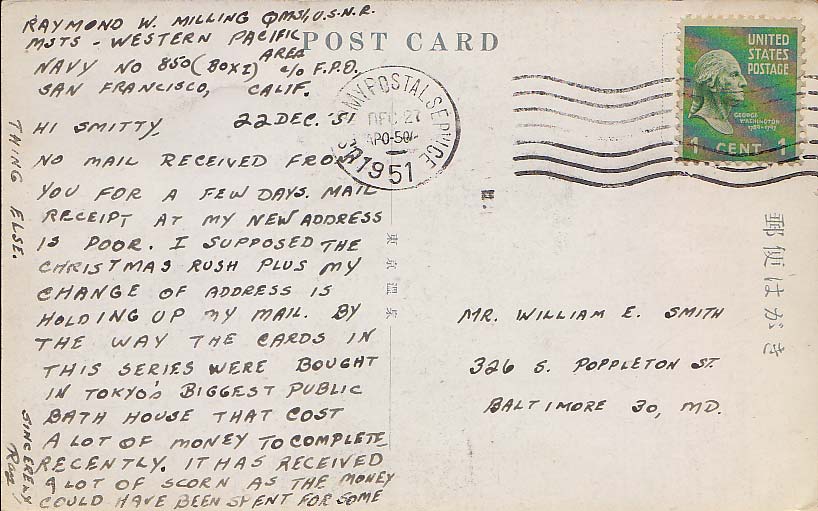 RAYMOND W. MILLING QMS1, U.S.N.R.
MSTS - WESTERN PACIFIC
AREA
NAVY NO 850 (BOX I) c/o F.P.O.
SAN FRANCISCO, CALIF.
POST CARD
HI SMITTY, 22 DEC. '51
NO MAIL RECEIVED FROM
YOU FOR A FEW DAYS. MAIL
RECEIPT AT MY NEW ADDRESS
IS POOR. I SUPPOSED THE
CHRISTMAS RUSH PLUS MY
CHANGE OF ADDRESS IS
HOLDING UP MY MAIL. BY
THE WAY THE CARDS IN
THIS SERIES WERE BOUGHT
IN TOKYO'S BIGGEST PUBLIC
BATH HOUSE THAT COST
A LOT OF MONEY TO COMPLETE
RECENTLY. IT HAS RECEIVED
A LOT OF SCORN AS THE MONEY
COULD HAVE BEEN SPENT FOR SOME
THING ELSE.
SINCERELY
Ray
POSTAL SERVICE
DEC 27
1951
UNITED
STATES
POSTAGE
GEORGE
WASHINGTON
1 CENT 1
東京温泉
郵便はがき
MR. WILLIAM E. SMITH
326 S. POPPLETON ST.
BALTIMORE 30, MD.